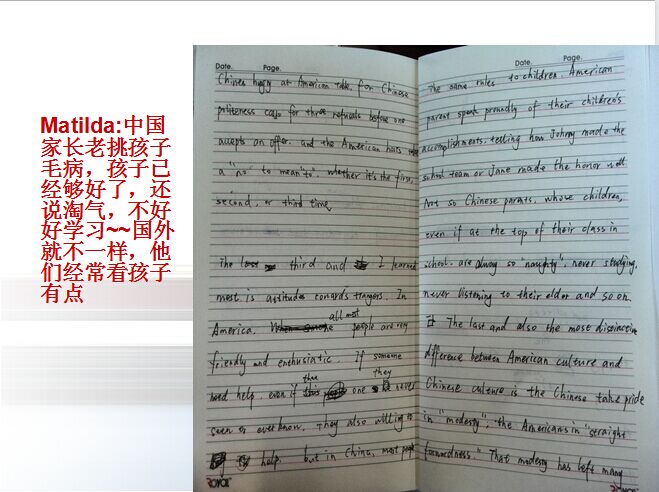 Matilda:中国
家长老挑孩子
毛病，孩子已
经够好了，还
说淘气，不好
好学习~~国外
就不一样，他
们经常看孩子
有点
Date. Page.
Chines hungry at American table. for Chinese
politeness calls for three refusals before one
accepts an offer. and the American hosts
a "no" to mean "no". whether it's the first,
second, or third time.
The third and I learned
most is attitudes towards strangers. In
America. all most people are very
friendly and enthusiatic. If someone
need help. even if the one they never
seen or ever know. They also willing to
help. but in China, most people
ROYCE
Date. Page.
The same rules to children. American
parent speak proudly of their children's
accomplishments. telling how Johnny made the
school team or Jane made the honor roll
Not so Chinese parents, whose children,
even if at the top of their class in
school. are alway so "naughty". never studying,
never listening to their elder and so on.
The last and also the most disinctive
difference between American culture and
Chinese culture is the Chinese take pride
in "modesty"; the Americans in "straight
forwardness." That modesty has left many